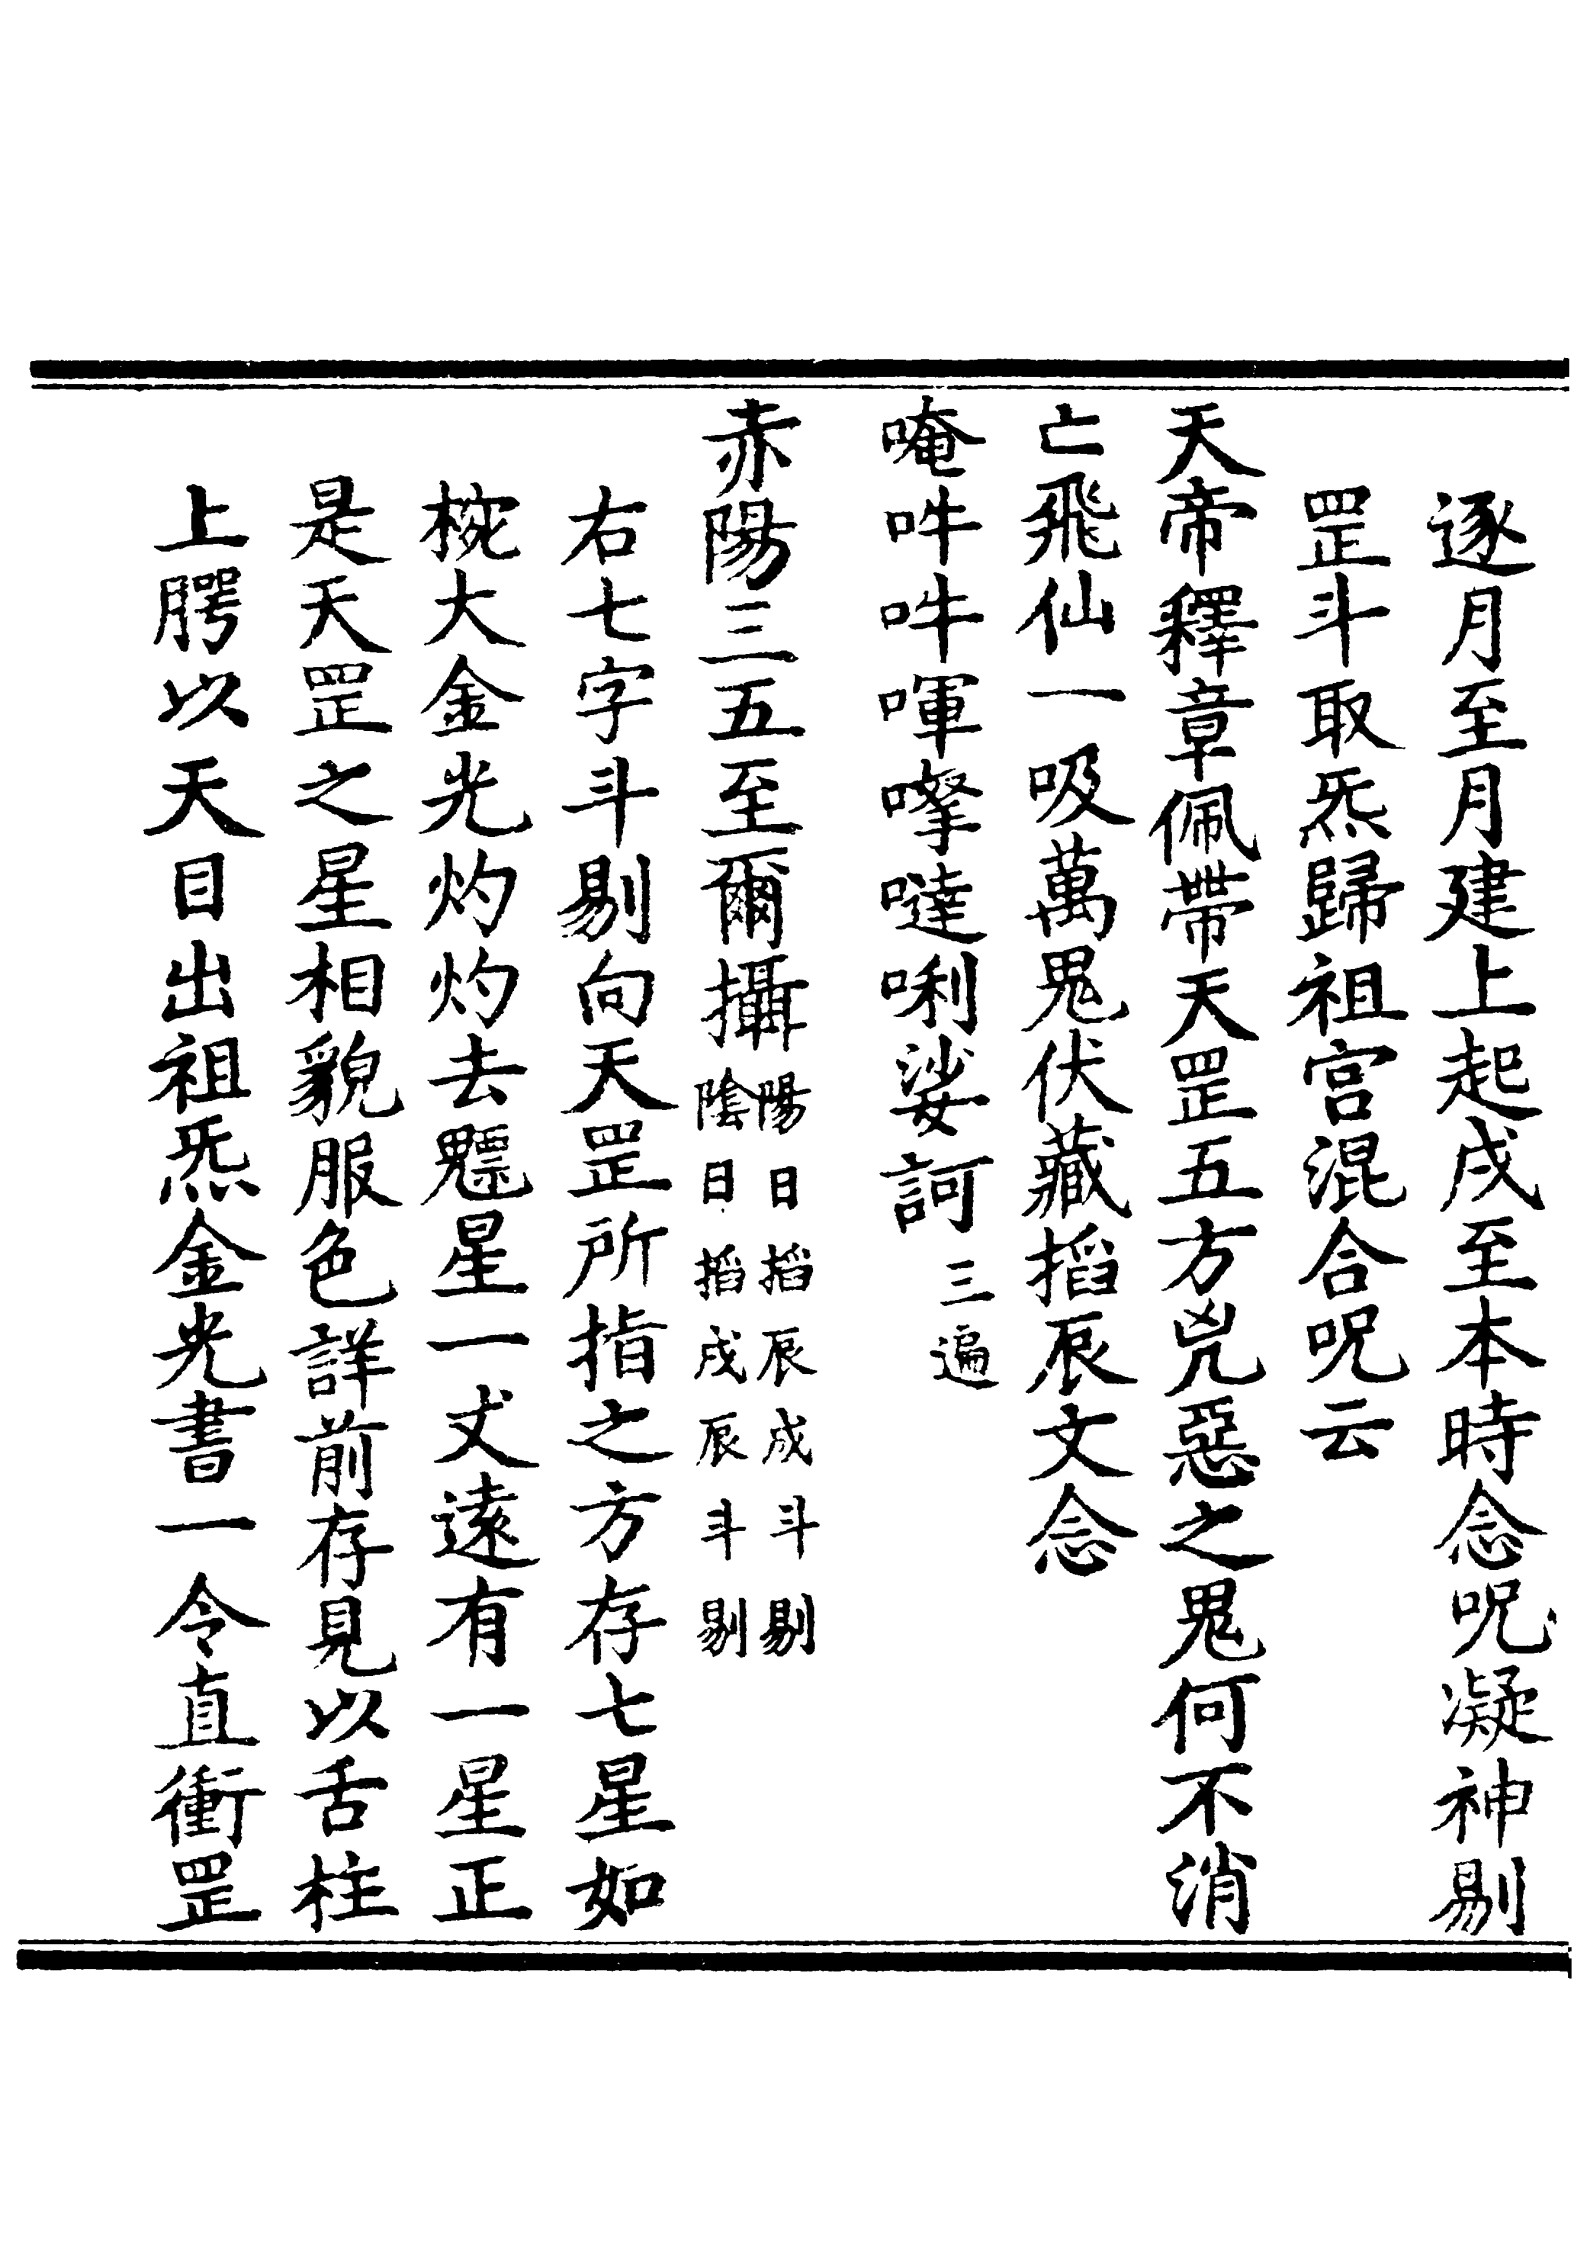 逐月至月建上起戌至本時念呪凝神剔
罡斗取炁歸祖宮混合呪云
天帝釋章佩帶天罡五方兇惡之鬼何不消
亡飛仙一吸萬鬼伏藏搯辰文念
唵吽吽㖮㘑噠唎娑訶三遍
赤陽三五至爾攝陽日搯辰戌斗剔
陰日搯戌辰斗剔
右七字斗剔向天罡所指之方存七星如
椀大金光灼灼去魒星一丈遠有一星正
是天罡之星相貌服色詳前存見以舌柱
上腭以天目出祖炁金光書一令直衝罡